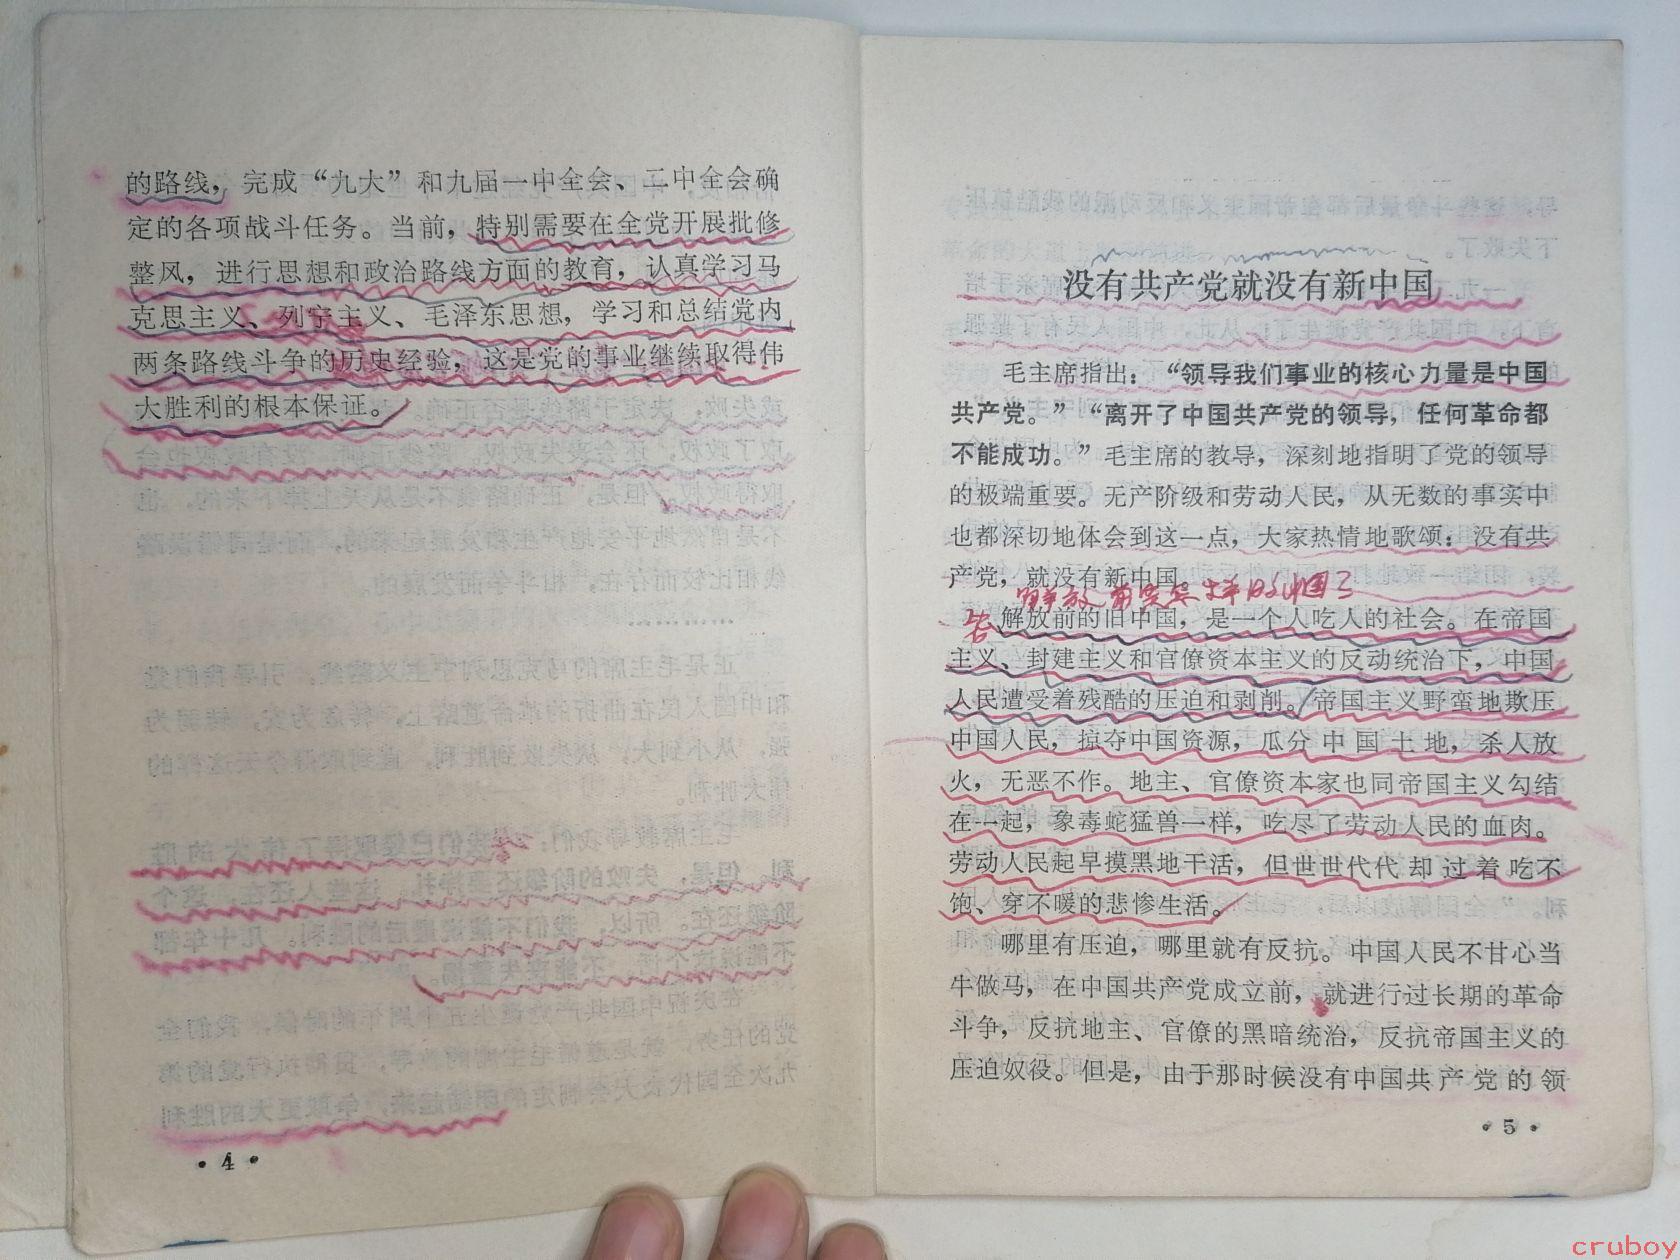 的路线，完成“九大”和九届一中全会、二中全会确
定的各项战斗任务。当前，特别需要在全党开展批修
整风，进行思想和政治路线方面的教育，认真学习马
克思主义、列宁主义、毛泽东思想，学习和总结党内
两条路线斗争的历史经验，这是党的事业继续取得伟
大胜利的根本保证。
• 4 •
没有共产党就没有新中国
毛主席指出：“领导我们事业的核心力量是中国
共产党。”“离开了中国共产党的领导，任何革命都
不能成功。”毛主席的教导，深刻地指明了党的领导
的极端重要。无产阶级和劳动人民，从无数的事实中
也都深切地体会到这一点，大家热情地歌颂：没有共
产党，就没有新中国。
解放前
中国
答
解放前的旧中国，是一个人吃人的社会。在帝国
主义、封建主义和官僚资本主义的反动统治下，中国
人民遭受着残酷的压迫和剥削。帝国主义野蛮地欺压
中国人民，掠夺中国资源，瓜分中国土地，杀人放
火，无恶不作。地主、官僚资本家也同帝国主义勾结
在一起，象毒蛇猛兽一样，吃尽了劳动人民的血肉。
劳动人民起早摸黑地干活，但世世代代却过着吃不
饱、穿不暖的悲惨生活。
哪里有压迫，哪里就有反抗。中国人民不甘心当
牛做马，在中国共产党成立前，就进行过长期的革命
斗争，反抗地主、官僚的黑暗统治，反抗帝国主义的
压迫奴役。但是，由于那时候没有中国共产党的领
• 5 •
cruboy